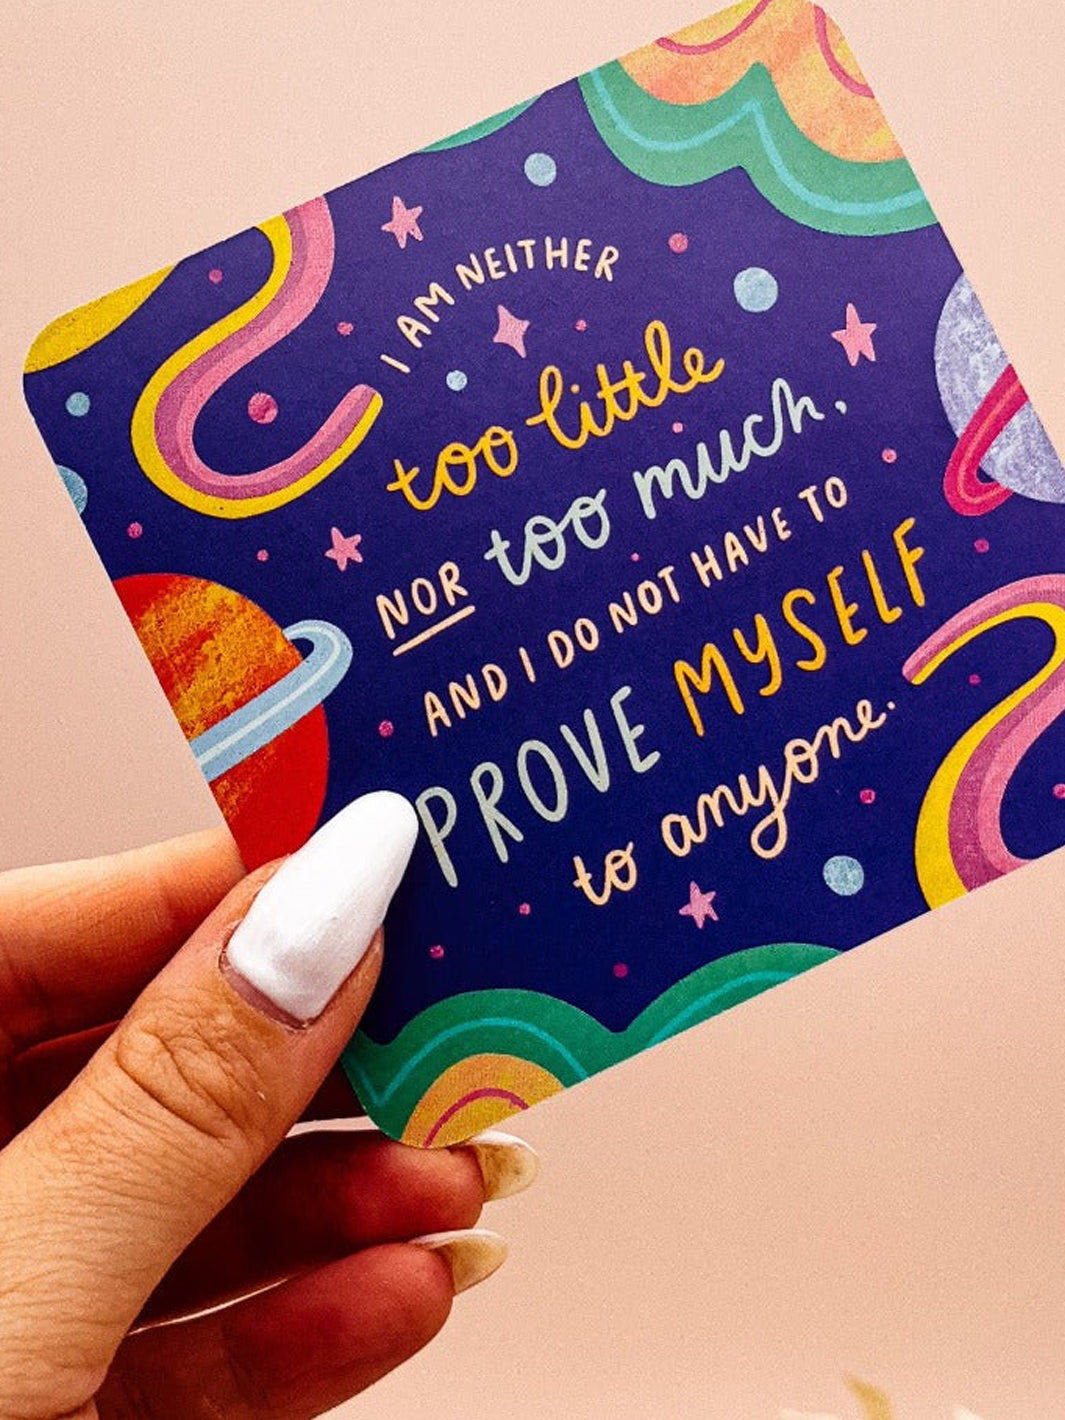 I AM NEITHER
too little
NOR too much,
AND I DO NOT HAVE TO
PROVE MYSELF
to anyone.